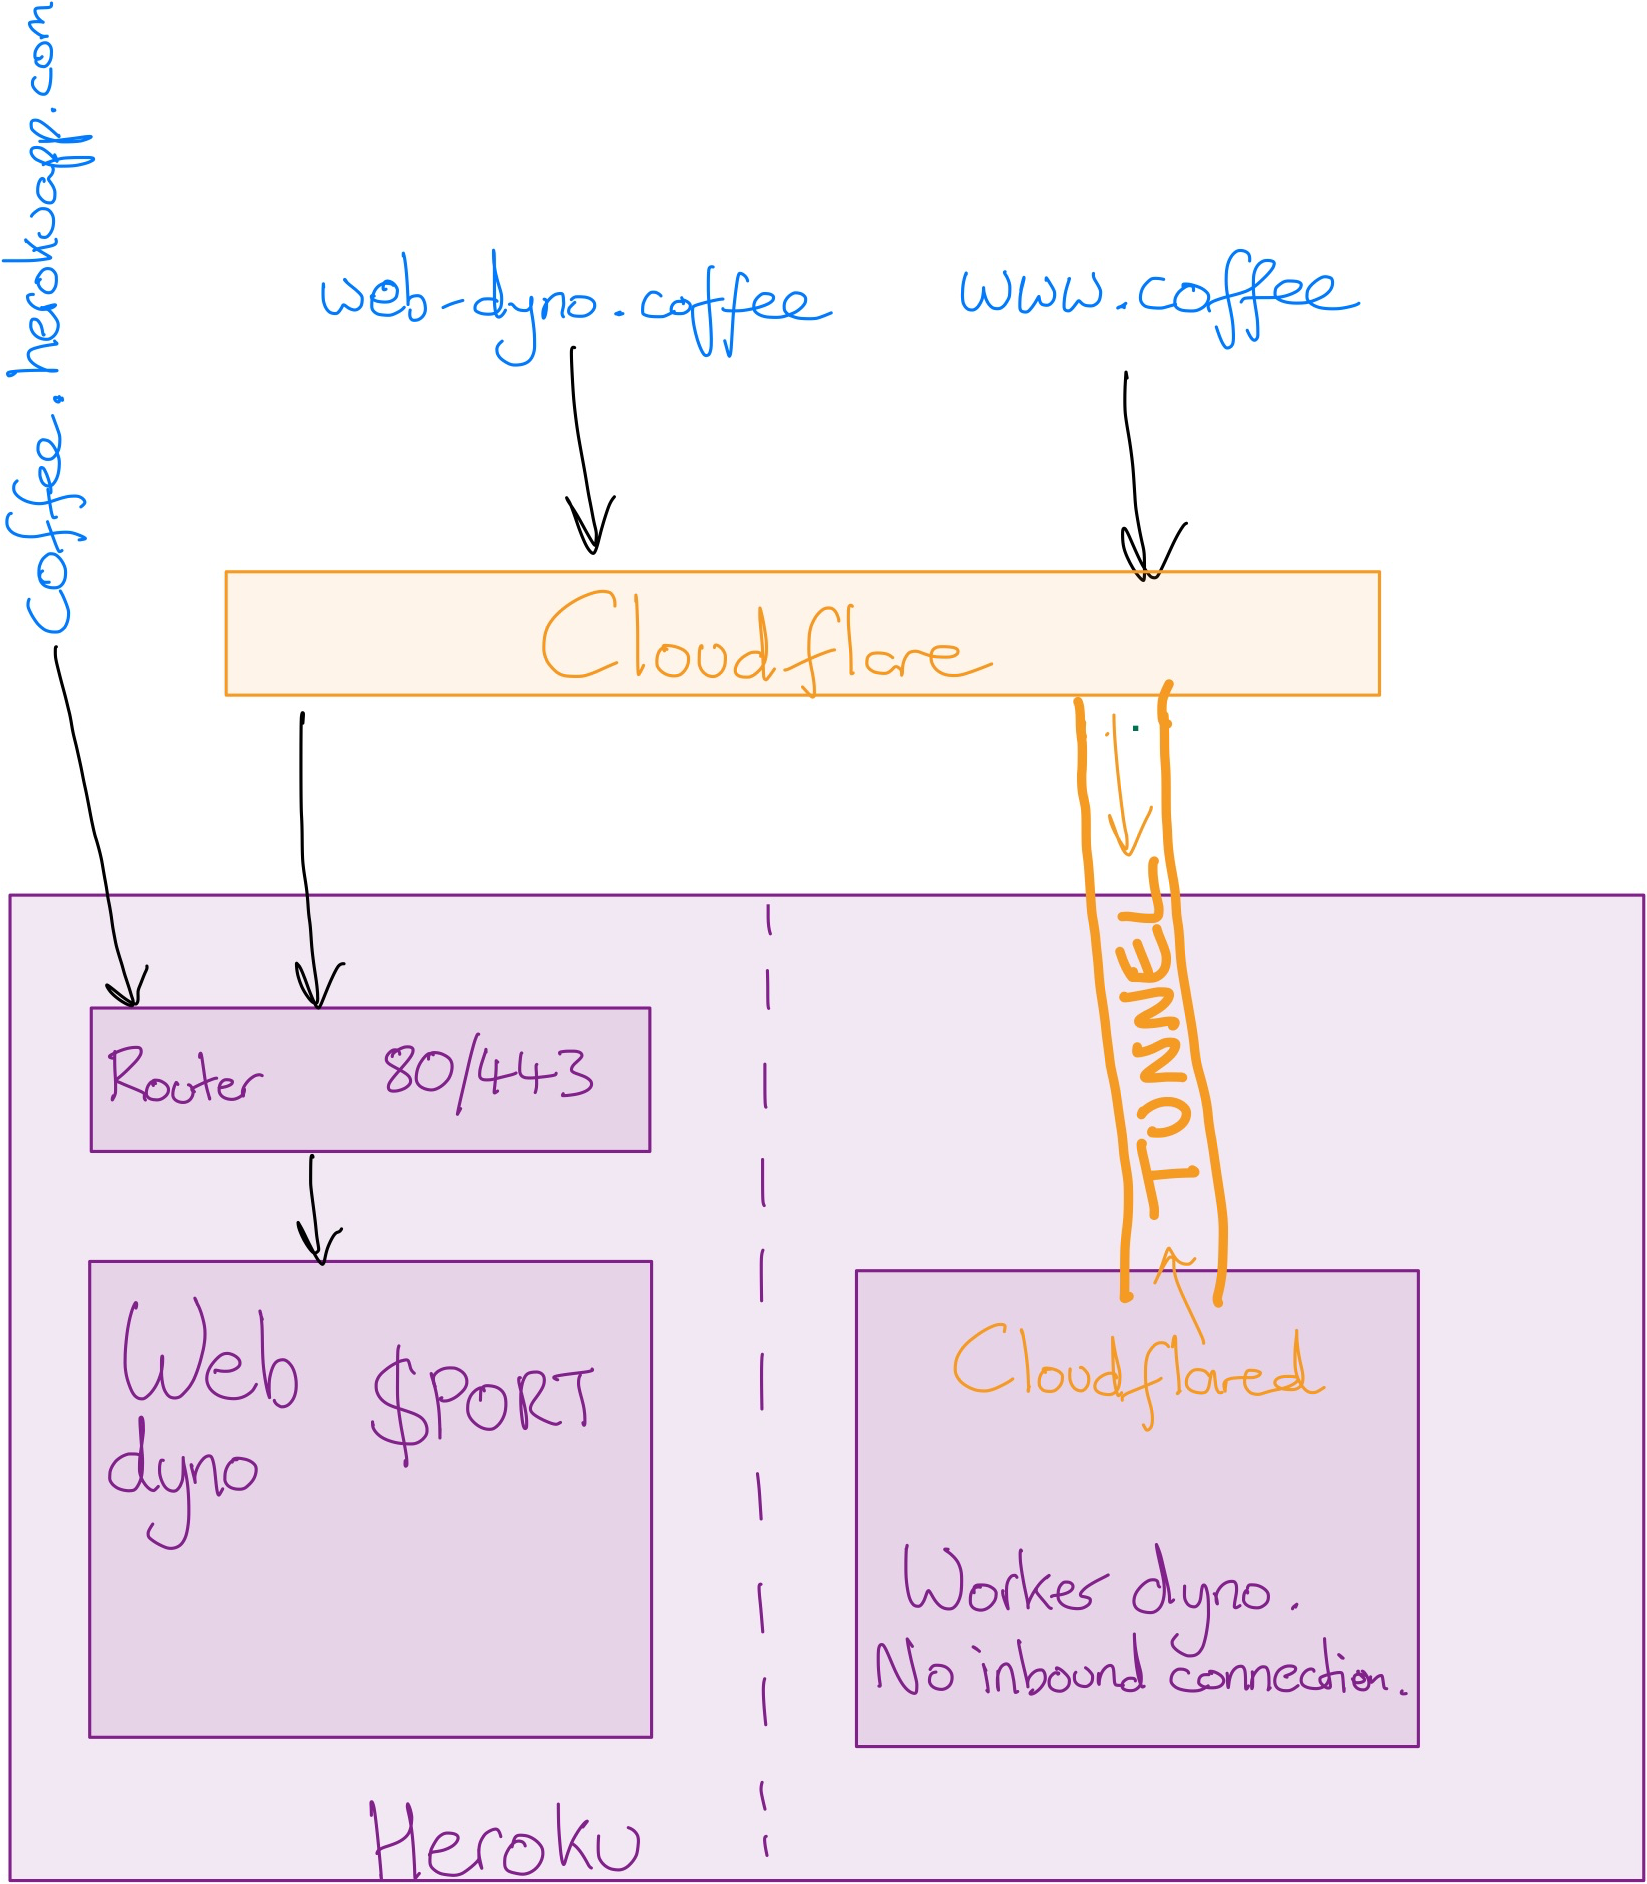 Coffee.herokuapp.com
web-dyno.coffee
www.coffee
Cloudflare
TUNNEL
Router 80/443
Web
dyno
$PORT
Cloudflared
Worker dyno.
No inbound connection.
Heroku